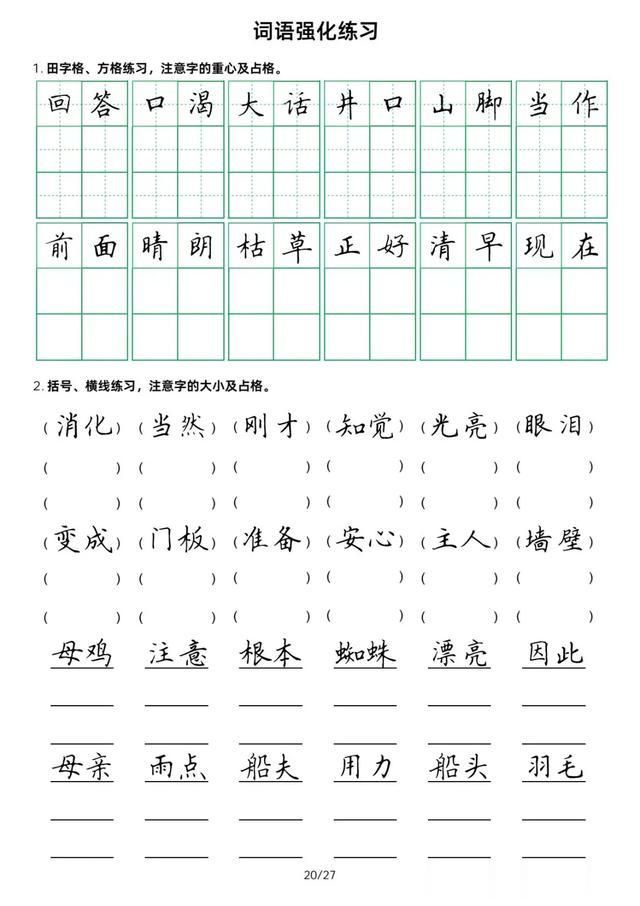 词语强化练习
1. 田字格、方格练习，注意字的重心及占格。
回答 口渴 大话 井口 山脚 当作
前面 晴朗 枯草 正好 清早 现在
2. 括号、横线练习，注意字的大小及占格。
(消化) (当然) (刚才) (知觉) (光亮) (眼泪)
( ) ( ) ( ) ( ) ( ) ( )
( ) ( ) ( ) ( ) ( ) ( )
(变成) (门板) (准备) (安心) (主人) (墙壁)
( ) ( ) ( ) ( ) ( ) ( )
( ) ( ) ( ) ( ) ( ) ( )
母鸡 注意 根本 蜘蛛 漂亮 因此
母亲 雨点 船夫 用力 船头 羽毛
20/27